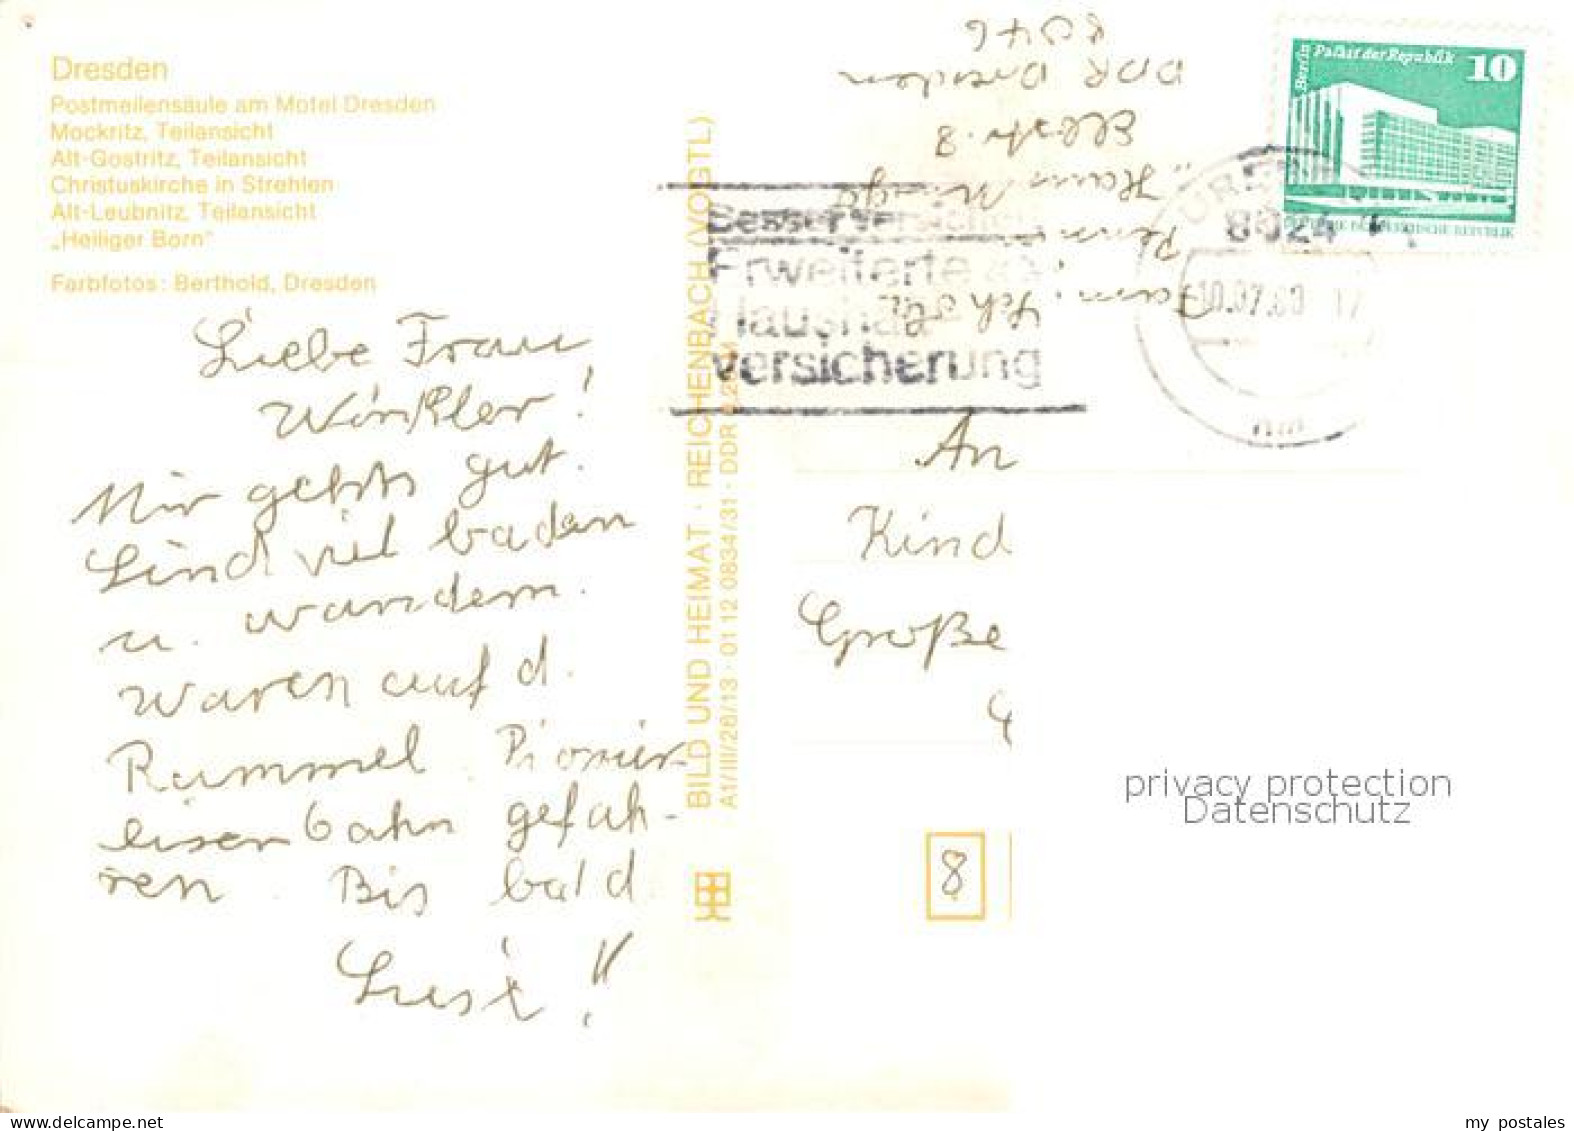 Dresden
Postmeilensäule am Motel Dresden
Mockritz, Teilansicht
Alt-Gostritz, Teilansicht
Christuskirche in Strehlen
Alt-Leubnitz, Teilansicht
„Heiliger Born"
Farbfotos: Berthold, Dresden
Liebe Frau
Winkler!
Mir gehts gut.
Sind viel baden
u. wandern.
Waren auf d.
Rummel. Pionier-
eisenbahn gefah-
ren. Bis bald
BILD UND HEIMAT · REICHENBACH (VOGTL)
A1/III/26/13 · 01 12 0834/31 · DDR
8046
DDR Dresden
8
Berlin Palast der Republik 10
DEUTSCHE DEMOKRATISCHE REPUBLIK
8024
10.07.80
Besser versichert
Erweiterte
Haushalt
versicherung
An
Kind
Große
8
privacy protection
Datenschutz
www.delcampe.net
my_postales